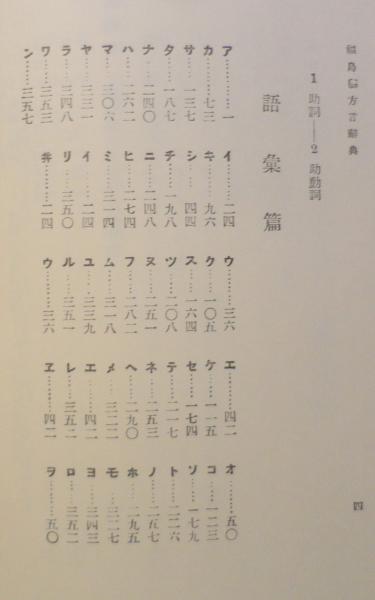 福島縣方言辭典
1 助詞――2 助動詞
語彙篇
ア………一 イ………二四 ウ………三六 エ………四二 オ………五〇
カ………七三 キ………九六 ク………一〇五 ケ………一一五 コ………一二三
サ………一三七 シ………一四四 ス………一六四 セ………一七四 ソ………一七九
タ………一八七 チ………一九八 ツ………二〇八 テ………二一七 ト………二二六
ナ………二四〇 ニ………二四八 ヌ………二五一 ネ………二五三 ノ………二五七
ハ………二六二 ヒ………二七四 フ………二八二 ヘ………二九〇 ホ………二九五
マ………三〇六 ミ………三一四 ム………三一八 メ………三二二 モ………三二七
ヤ………三三一 イ………二四 ユ………三三九 エ………四二 ヨ………三四三
ラ………三四八 リ………三五〇 ル………三五一 レ………三五二 ロ………三五二
ワ………三五三 ヰ………二四 ウ………三六 ヱ………四二 ヲ………五〇
ン………三五七
四